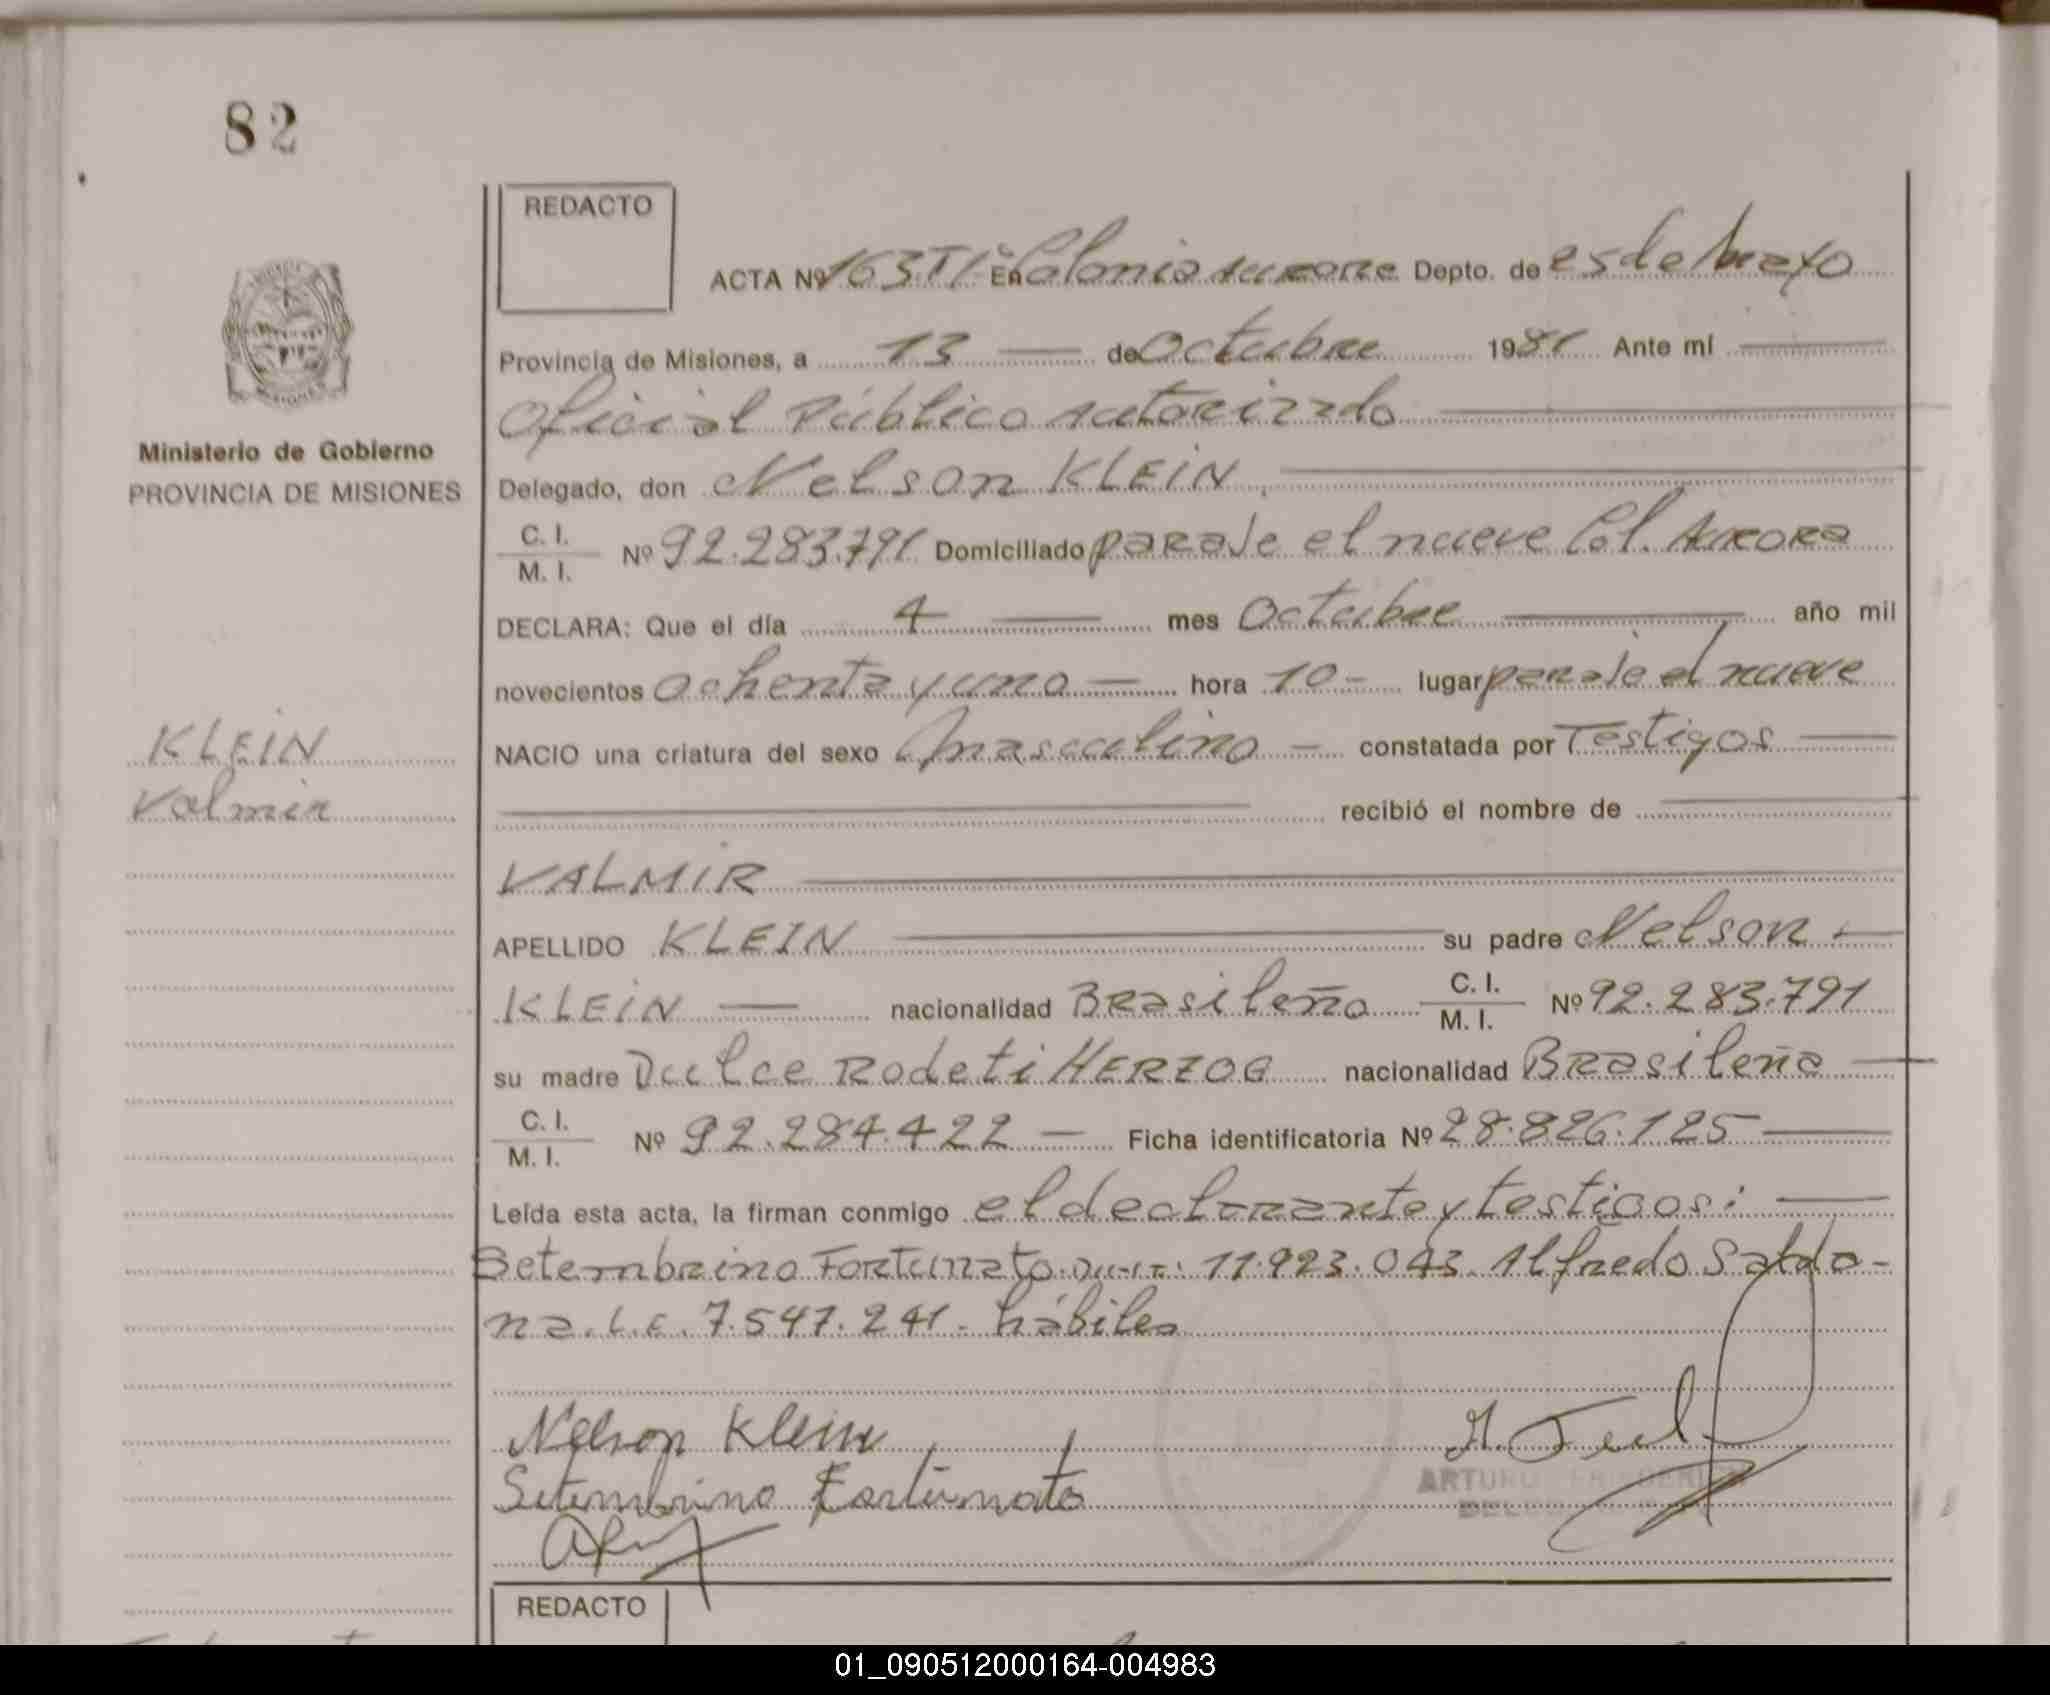 82
REDACTO
ACTA Nº 163.TI En Colonia Aurora Depto. de 25 de Mayo
Provincia de Misiones, a 13 de Octubre 1981 Ante mí
Oficial Público Autorizado
Ministerio de Gobierno
PROVINCIA DE MISIONES
Delegado, don Nelson KLEIN,
C. I.
M. I.
Nº 92.283.791 Domiciliado paraje el nueve Col. Aurora
DECLARA: Que el día 4 mes Octubre año mil
novecientos ochenta y uno hora 10 lugar paraje el nueve
KLEIN
Valmir
NACIO una criatura del sexo Masculino constatada por Testigos
recibió el nombre de
VALMIR
APELLIDO KLEIN su padre Nelson
KLEIN nacionalidad Brasileño C. I. M. I. Nº 92.283.791
su madre Dulce Rodeti HERZOG nacionalidad Brasileña
C. I.
M. I.
Nº 92.284.422 Ficha identificatoria Nº 28.826.125
Leída esta acta, la firman conmigo el declarante y testigos:
Setembrino Fortunato 11.923.043. Alfredo Saldo-
na. L.E. 7.547.241. hábiles
Nelson Klein
Setembrino Fortunato
ARTURO
REDACTO
01_090512000164-004983